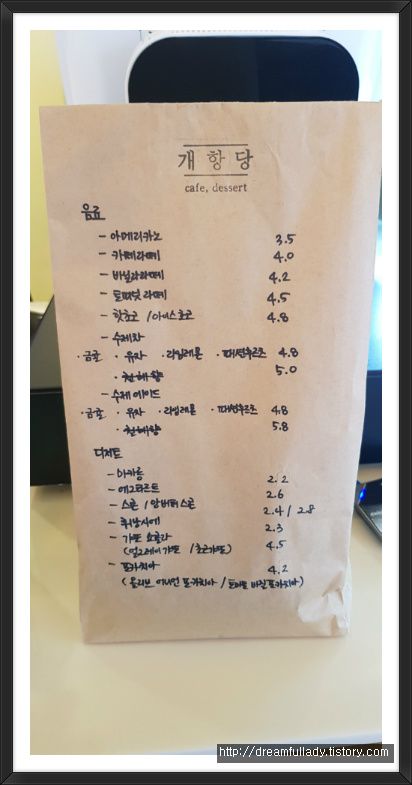 개항당
cafe, dessert
음료
- 아메리카노 3.5
- 카페라떼 4.0
- 바닐라라떼 4.2
- 토피넛 라떼 4.5
- 핫초코 / 아이스초코 4.8
- 수제차
· 금귤 · 유자 · 라임레몬 · 패션후르츠 4.8
· 천혜향 5.0
- 수제 에이드
· 금귤 · 유자 · 라임레몬 · 패션후르츠 4.8
· 천혜향 5.8
디저트
- 마카롱 2.2
- 에그타르트 2.6
- 스콘 / 앙버터스콘 2.4 / 2.8
- 휘낭시에 2.3
- 가또 쇼콜라 4.5
(얼그레이가또 / 초코가또)
- 포카치아 4.2
(올리브 어니언 포카치아 / 토마토 바질포카치아)
http://dreamfullady.tistory.com